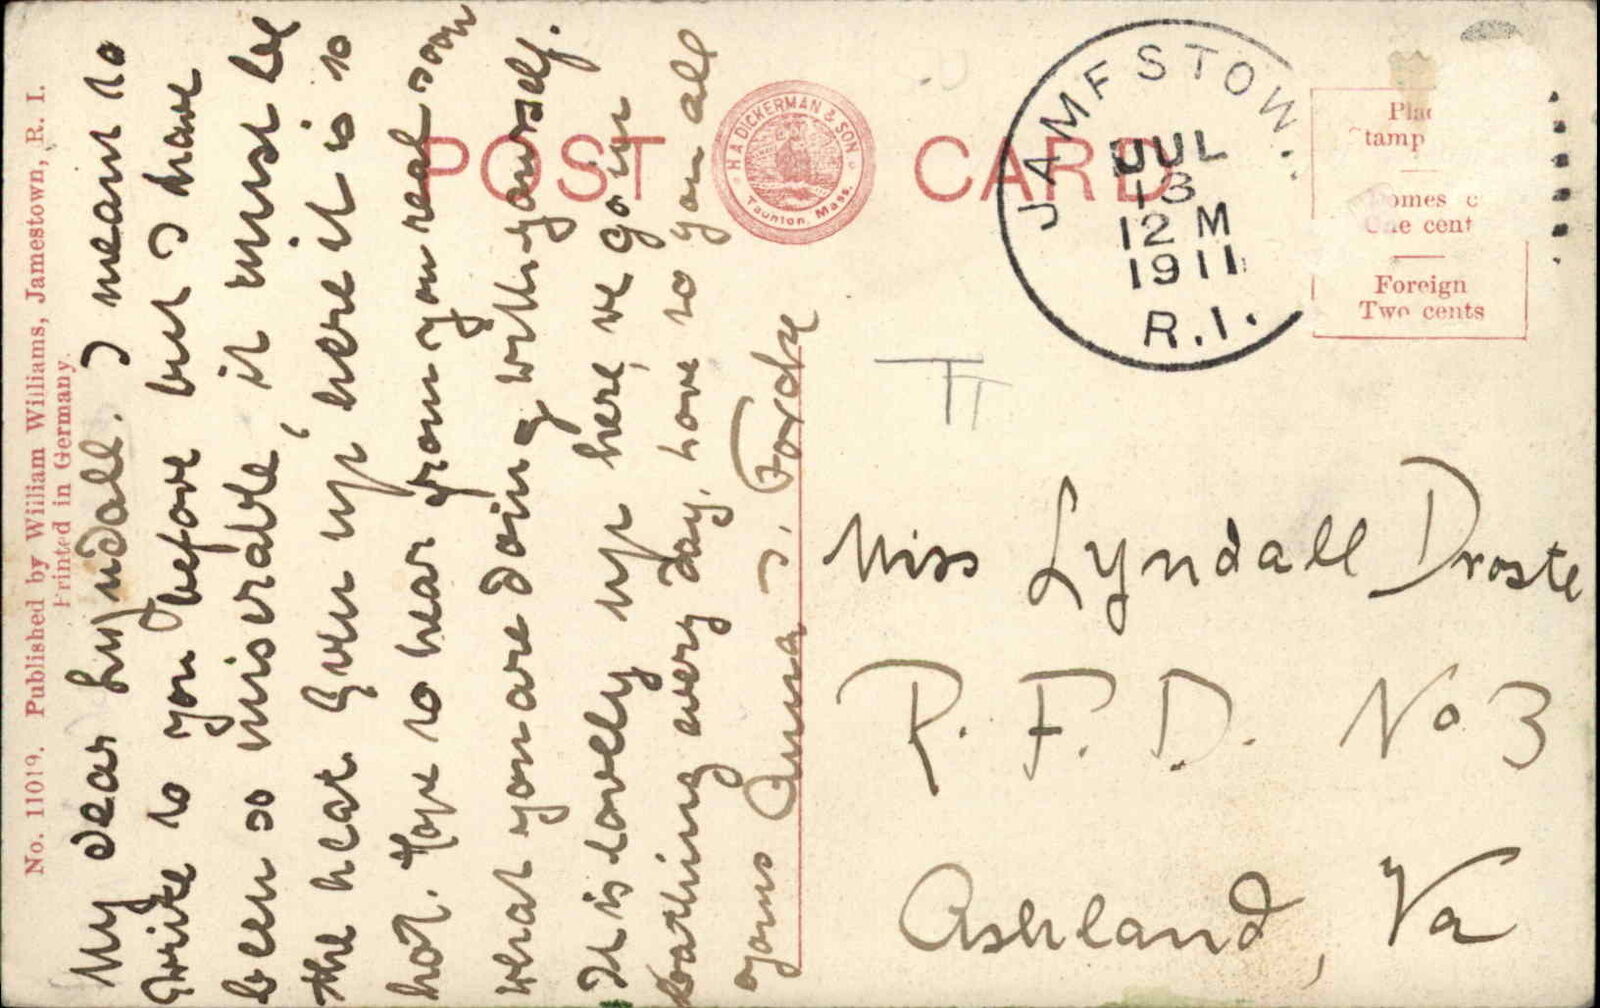 No. 11019. Published by William Williams, Jamestown, R. I.
Printed in Germany.
My dear Lyndall. I meant to
write to you before but I have
been so miserable, it must be
the heat. Even up here it is so
hot. Hope to hear from you real soon
what you are doing with yourself.
It is lovely up here, we go in
bathing every day, love to you all
yours Anna J. Forde
POST CARD
H.A. DICKERMAN & SON
Taunton, Mass.
JAMESTOWN.
JUL
13
12 M
1911
R.I.
Stamp
One cent
Foreign
Two cents
Miss Lyndall Droste
R. F. D. No 3
Ashland, Va